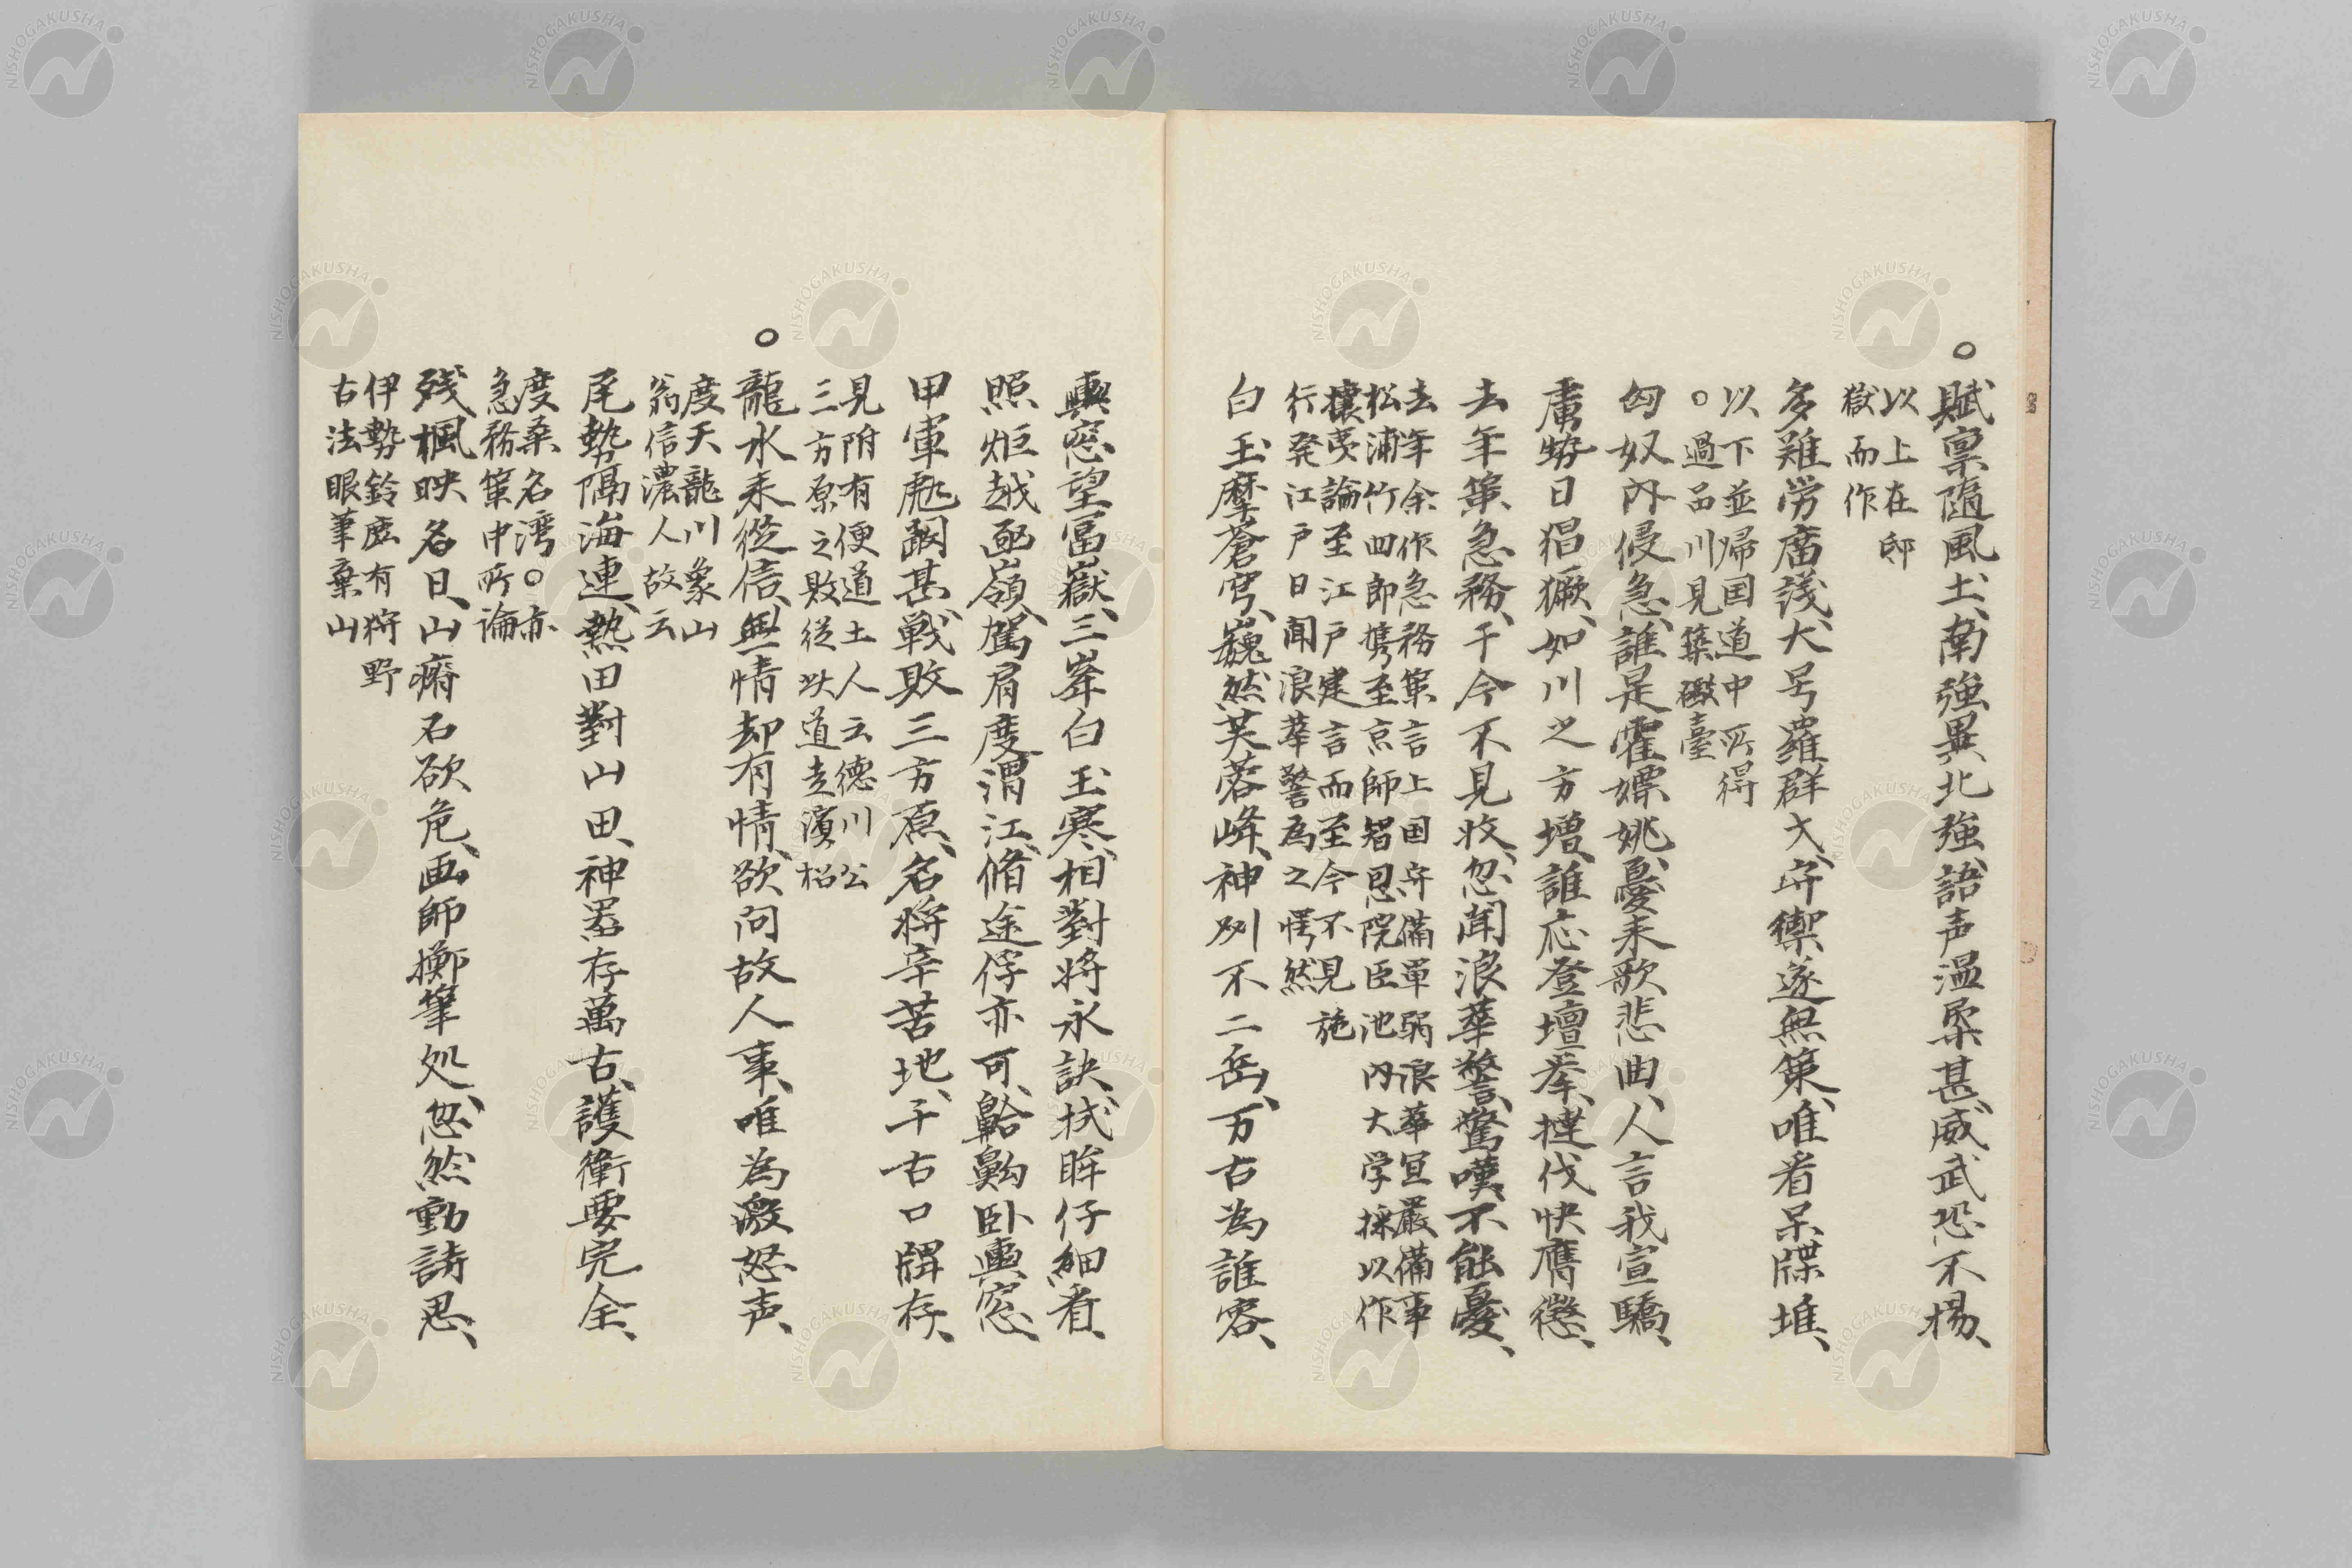 ○賦禀随風土、南強異北強、語声温柔甚、威武恐不揚、
以上在邸
獄而作
多難労廟議、大号羅群才、守禦遂無策、唯看呈牒堆、
以下並帰国道中所得
○過品川見築礟臺
匈奴内侵急、誰是霍嫖姚、憂来歌悲曲、人言我宣驕、
虜勢日猖獗、如川之方増、誰応登壇挙、撻伐快膺懲、
去年策急務、于今不見收、忽聞浪華警、驚嘆不能憂、
去年余作急務策言上国守備単弱浪華宜厳備事
松浦竹四郎携至京師智恩院臣池内大学採以作
攘夷論至江戸建言而至今不見施
行発江戸日聞浪華警為之愕然
白玉摩蒼穹、巍然芙蓉峰、神州不二岳、万古為誰容、
輿窓望冨嶽、三峯白玉寒、相對将永訣、拭眸仔細看、
照炬越凾嶺、駕肩度渭江、脩途俘亦可、鼾齁臥輿窓、
甲軍彪闞甚、戦敗三方原、名将辛苦地、千古口碑存、
見附有便道土人云徳川公
三方原之敗従此道走濱松
○龍水来従信、無情却有情、欲問故人事、唯為激怒声、
度天龍川象山
翁信濃人故云
尾勢隔海連、熱田對山田、神器存萬古、護衛要完全、
度桑名湾○亦
急務策中所論
残楓映名日、山瘠石欲危、画師擲筆処、忽然動詩思、
伊勢鈴鹿有狩野
古法眼筆棄山